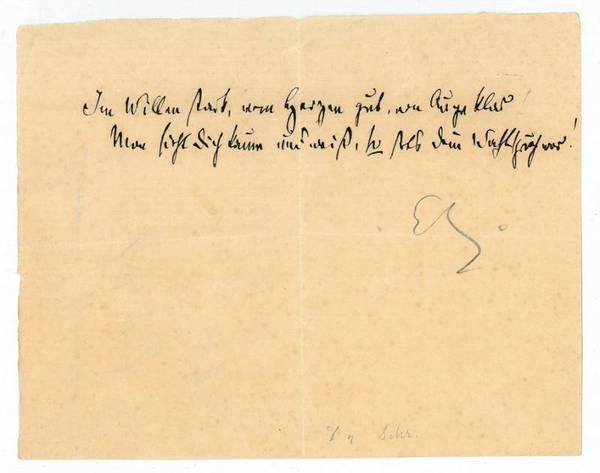 Im Willen stark, vom Herzen gut, von Auge klar!
Man sieht Dich kaum und weiß, so stets dein Wahlspruch war!
Schr.